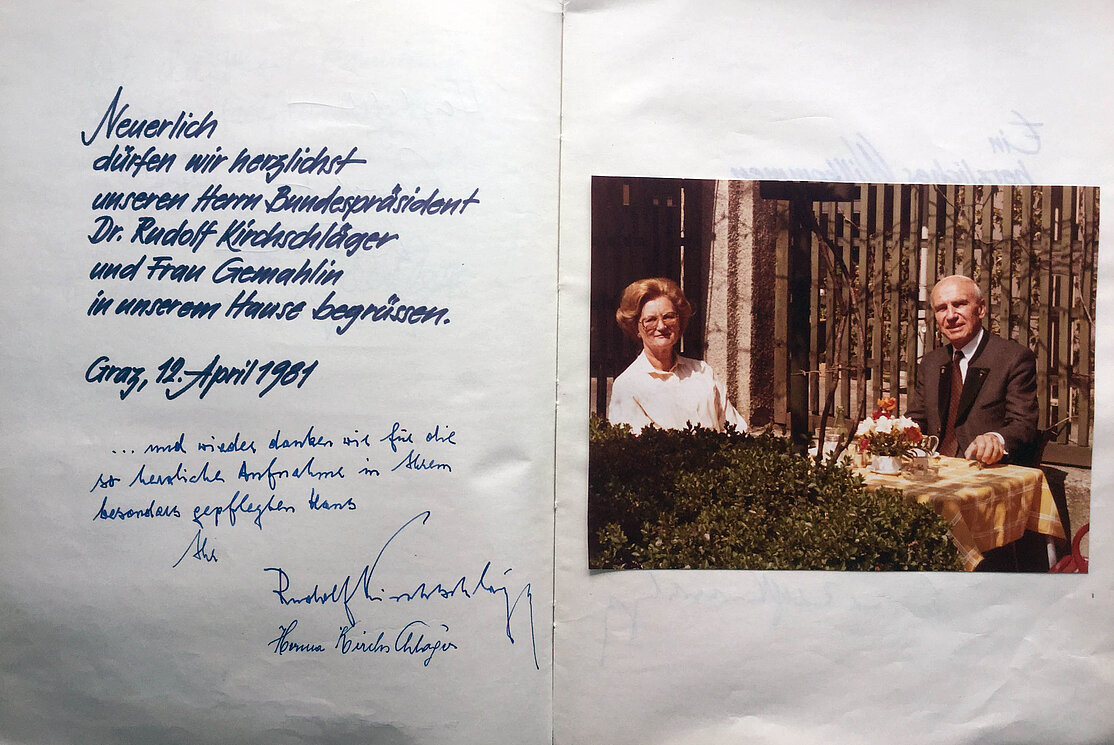 Neuerlich
dürfen wir herzlichst
unseren Herrn Bundespräsident
Dr. Rudolf Kirchschläger
und Frau Gemahlin
in unserem Hause begrüssen.
Graz, 12. April 1981
... und wieder danken wir für die
so herzliche Aufnahme in Ihrem
besonders gepflegten Haus
Ihr
Rudolf Kirchschläger
Herma Kirchschläger
Ein
herzliches Willkommen